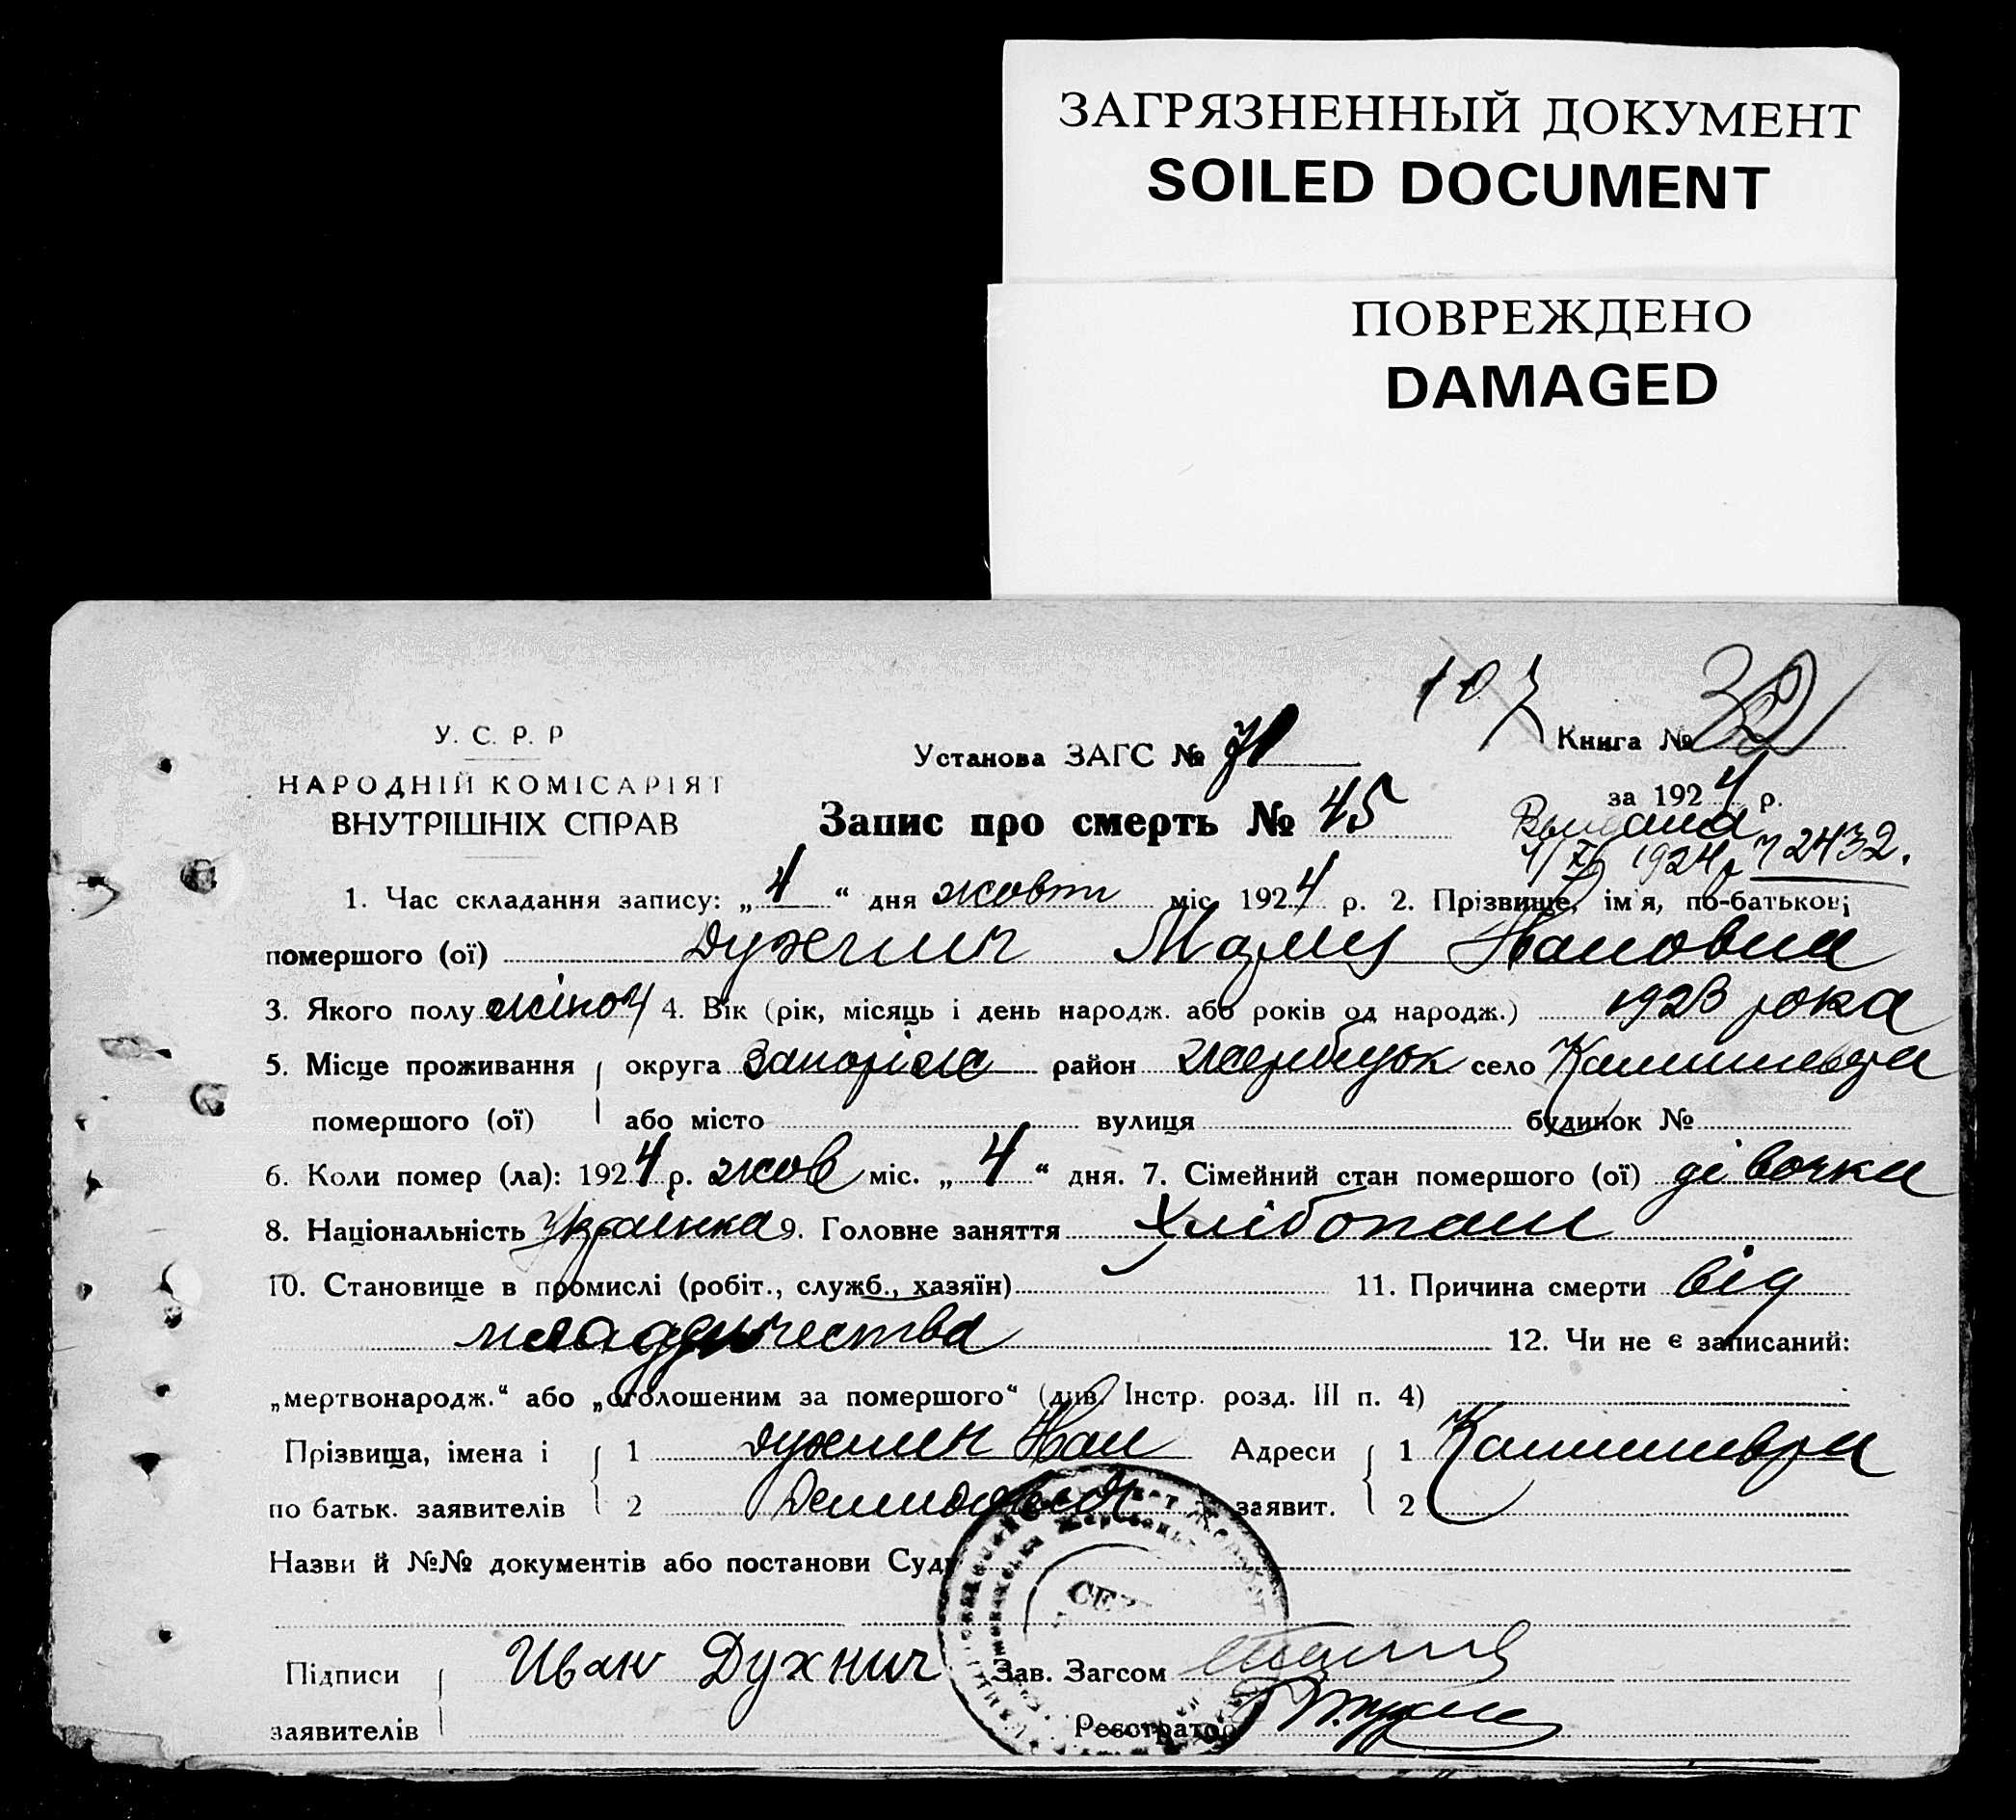 ЗАГРЯЗНЕННЫЙ ДОКУМЕНТ
SOILED DOCUMENT
ПОВРЕЖДЕНО
DAMAGED
107
У. С. Р. Р
НАРОДНІЙ КОМІСАРІЯТ
ВНУТРІШНІХ СПРАВ
Установа ЗАГС №
Книга №
за 1924 р.
Запис про смерть № 45
1924 2432.
1. Час складання запису: „4“ дня жовт міс. 1924 р. 2. Прізвище, ім'я, по-батькові
помершого (ої) Духнич
3. Якого полу жіноч 4. Вік (рік, місяць і день народж. або років од народж.) 1923 рока
5. Місце проживання округа Запоріже район село
помершого (ої) або місто вулиця будинок №
6. Коли помер (ла): 1924 р. жов міс. „4“ дня. 7. Сімейний стан помершого (ої) дівочки
8. Національність Украинка 9. Головне заняття Хлібопаш
10. Становище в промислі (робіт., служб., хазяїн) 11. Причина смерти від
младенчества 12. Чи не є записаний:
„мертвонародж.“ або „оголошеним за помершого“ (див. Інстр. розд. III п. 4)
Прізвища, імена і 1 Духнич Иван Адреси 1
по батьк. заявителів 2 заявит. 2
Назви й №№ документів або постанови Суду
Підписи Иван Духнич Зав. Загсом
заявителів Реєстратор